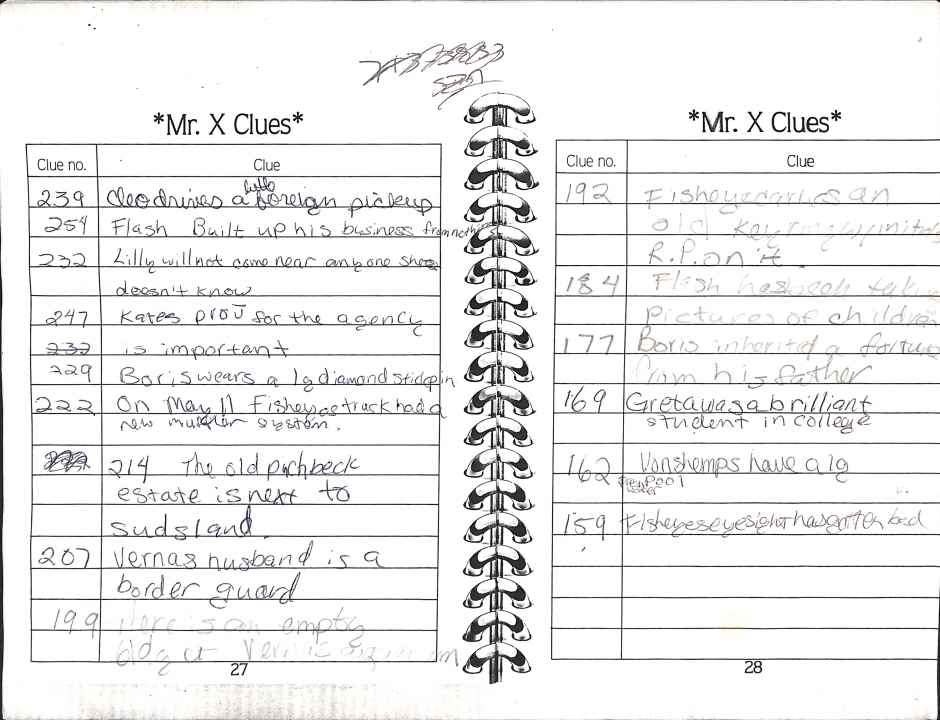 *Mr. X Clues*
Clue no. Clue
239 Cleo drives a little foreign pickup
254 Flash Built up his business from nothing
232 Lilly will not come near anyone she
doesn't know
247 Kates prov for the agency
232 is important
229 Boris wears a lg diamond stickpin
222 On May 11 Fisheyes truck had a
new muffler system.
214 The old pinchbeck
estate is next to
sudsland.
207 Vernas husband is a
border guard
199 There is an empty
bldg at Vernas aquarium
27
*Mr. X Clues*
Clue no. Clue
192 Fisheye carries an
old key ring w/initials
R.P. on it.
184 Flash has been taking
pictures of children
177 Boris inherited a fortune
from his father
169 Greta was a brilliant
student in college
162 Vonshemps have a lg
fresh water pool
159 Fisheyes eyesight has gotten bad
28